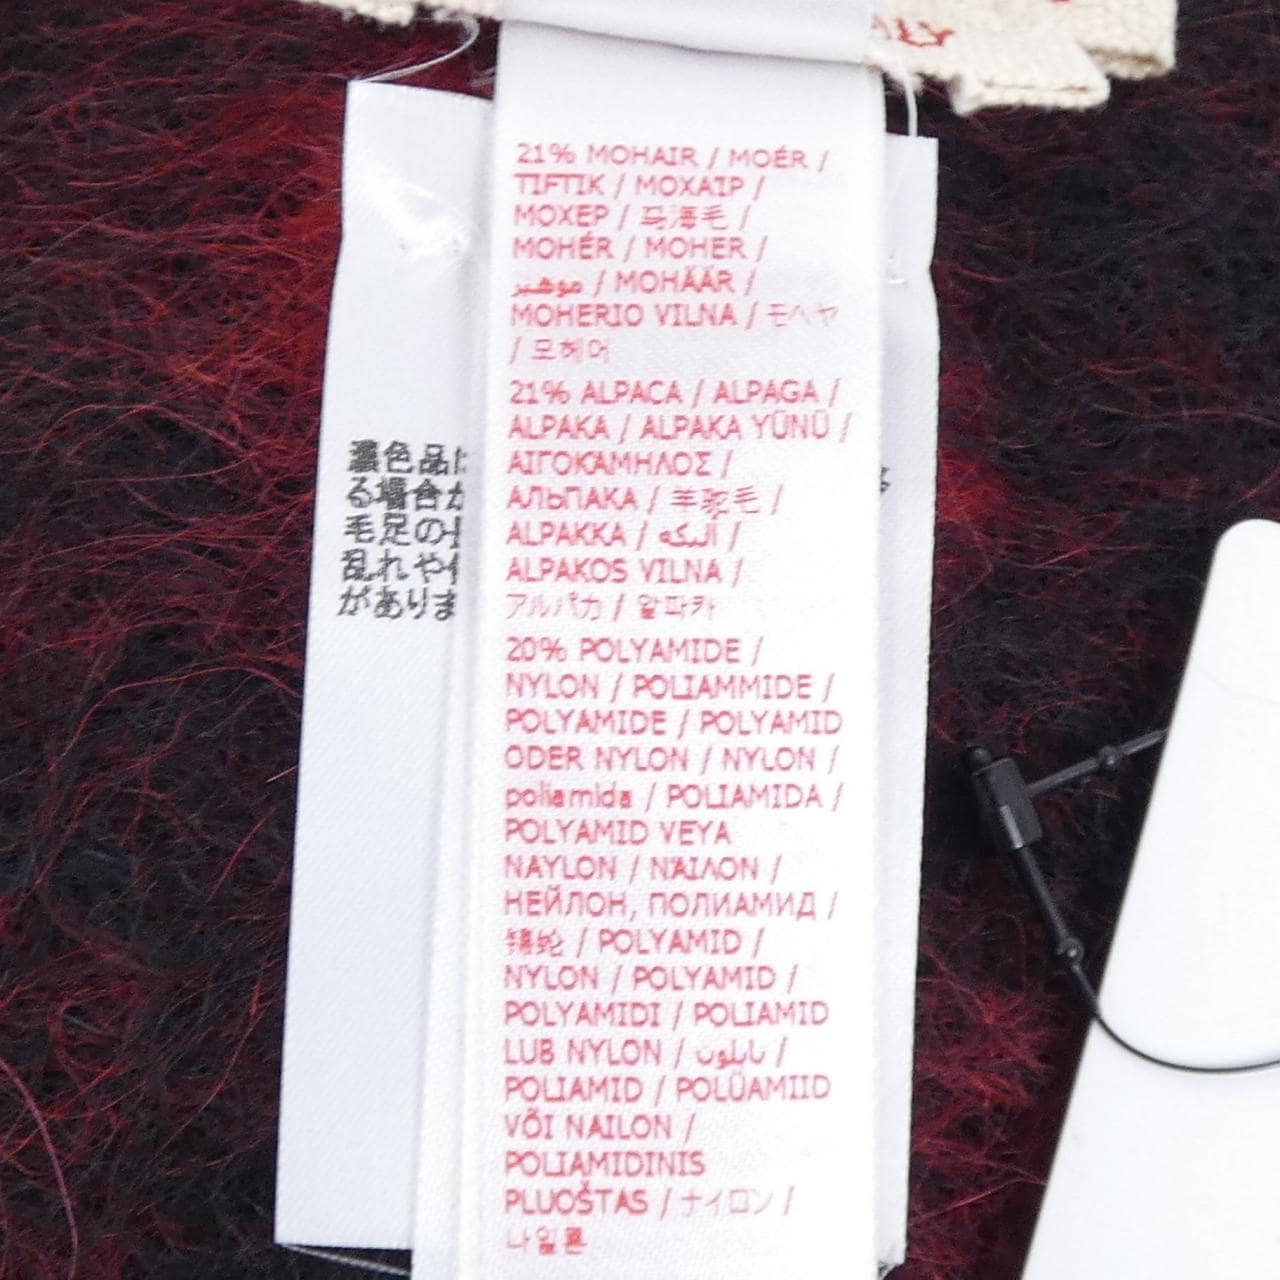 21% MOHAIR / MOÉR /
TIFTIK / ΜΟΧΑΙΡ /
МОХЕР / 马海毛 /
MOHÉR / MOHER /
موهير / MOHÄÄR /
MOHERIO VILNA / モヘヤ
/ 모헤어
21% ALPACA / ALPAGA /
ALPAKA / ALPAKA YÜNÜ /
ΑΙΓΟΚΑΜΗΛΟΣ /
АЛЬПАКА / 羊驼毛 /
ALPAKKA / البكه /
ALPAKOS VILNA /
アルパカ / 알파카
20% POLYAMIDE /
NYLON / POLIAMMIDE /
POLYAMIDE / POLYAMID
ODER NYLON / NYLON /
poliamida / POLIAMIDA /
POLYAMID VEYA
NAYLON / ΝΆΙΛΟΝ /
НЕЙЛОН, ПОЛИАМИД /
锦纶 / POLYAMID /
NYLON / POLYAMID /
POLYAMIDI / POLIAMID
LUB NYLON / نايلون /
POLIAMID / POLÜAMIID
VÕI NAILON /
POLIAMIDINIS
PLUOŠTAS / ナイロン /
나일론
濃色品に
る場合が
毛足の
乱れや
がありま